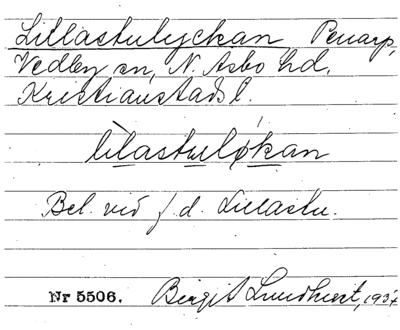 Lillastulyckan, Penarp,
Vedby sn, N. Åsbo hd.
Kristianstads l.
lìlastuløkan
Bel. vid f.d. Lillastu.
Nr 5506. Birgit Lundkvist, 1934